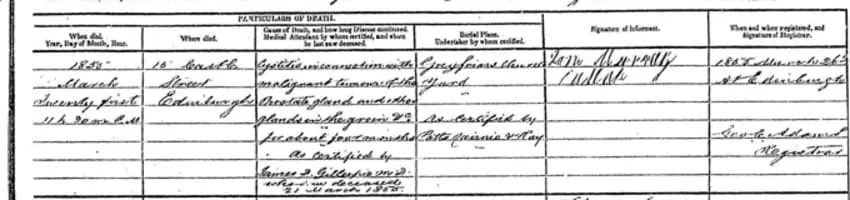 PARTICULARS OF DEATH.
When died.
Year, Day of Month, Hour.
Where died.
Cause of Death, and how long Disease continued.
Medical Attendant by whom certified, and when
he last saw deceased.
Burial Place.
Undertaker by whom certified.
Signature of Informant.
When and where registered, and
Signature of Registrar.
1855
March
Twenty first
11 h 30 m P.M
15 Castle
Street
Edinburgh
Cystitis in connection with
malignant tumour of the
Prostate gland and other
glands in the groin &c
for about four months
As certified by
James D. Gillespie M.D.
who saw deceased
21 March 1855.
Greyfriars Church
Yard
As certified by
Murray
1855 March 26th
At Edinburgh
Geo. Adams
Registrar